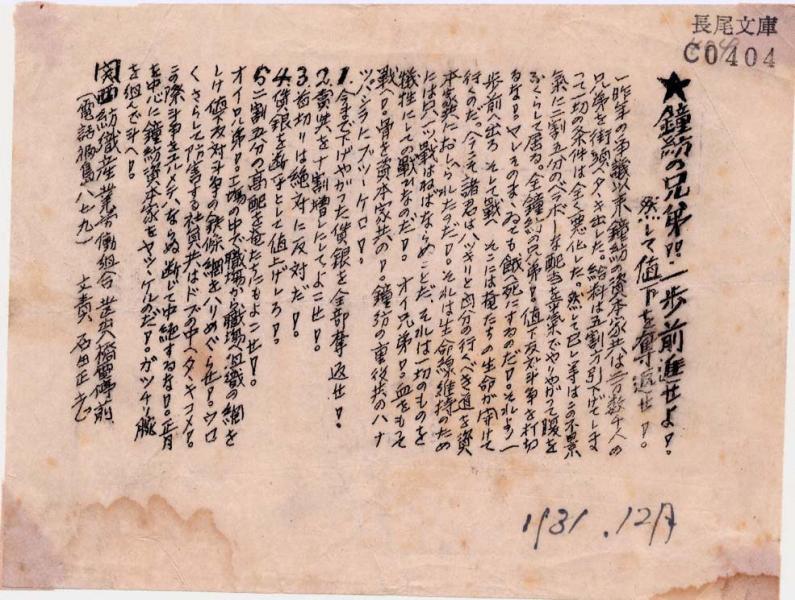 長尾文庫
C0404
★鐘紡の兄弟!! 一歩前進せよ!
然して値下を奪返せ!!
一昨年の争議以来鐘紡の資本家共は二万数千人の
兄弟を街頭へタヽキ出した。給料は五割方引下げてしま
つて一切の条件は全く悪化した。然して巳レ等はこの不景
氣に二割五分のベラボーな配当をやりやがつて腹を
ふくらして居る。全鐘紡の兄弟!値下反対斗争を打切
るな!!ソレそのまゝゐても餓死にするのだ!!それより一
歩前へ出ろ そして戦へ そこには俺たちの生命が開けて
行くのだ。今こそ諸君はハツキリと自分の行くべき道を資
本家におしへられたのだ!!それは生命線維持のため
には只一ツ戦はねばならぬことだ。それは一切のものを
犠牲にしての戦ひなのだ!! オイ兄弟!!血をもつて
戦へ!!骨を資本家共の!!鐘紡の重役共のハナ
ツパシラにブツツケロ!!
1.今まで下げやがつた賃銀を全部奪返せ!
2.賞与を十割増しにしてよこせ!
3.首切りは絶対に反対だ!
4.賃銀を断乎として値上げしろ!
5.二割五分の高配を俺たちにもよこせ!
オイ兄弟!!工場の中で職場から職場へ組織の網を
しけ 値下反対斗争の鉄條網をハリめぐらせ!ウロ
くさらして防害する社員共はドブの中へタヽキコメ!
この際斗争をユルメテハならぬ断じて中絶するな!正月
を中心に鐘紡資本家をヤツヽケルのだ!ガツチリ腕
を組んで斗へ!
関西紡織産業労働組合 橋電停前
(電話福島八七九一) 文責 石田正志
1931.12月